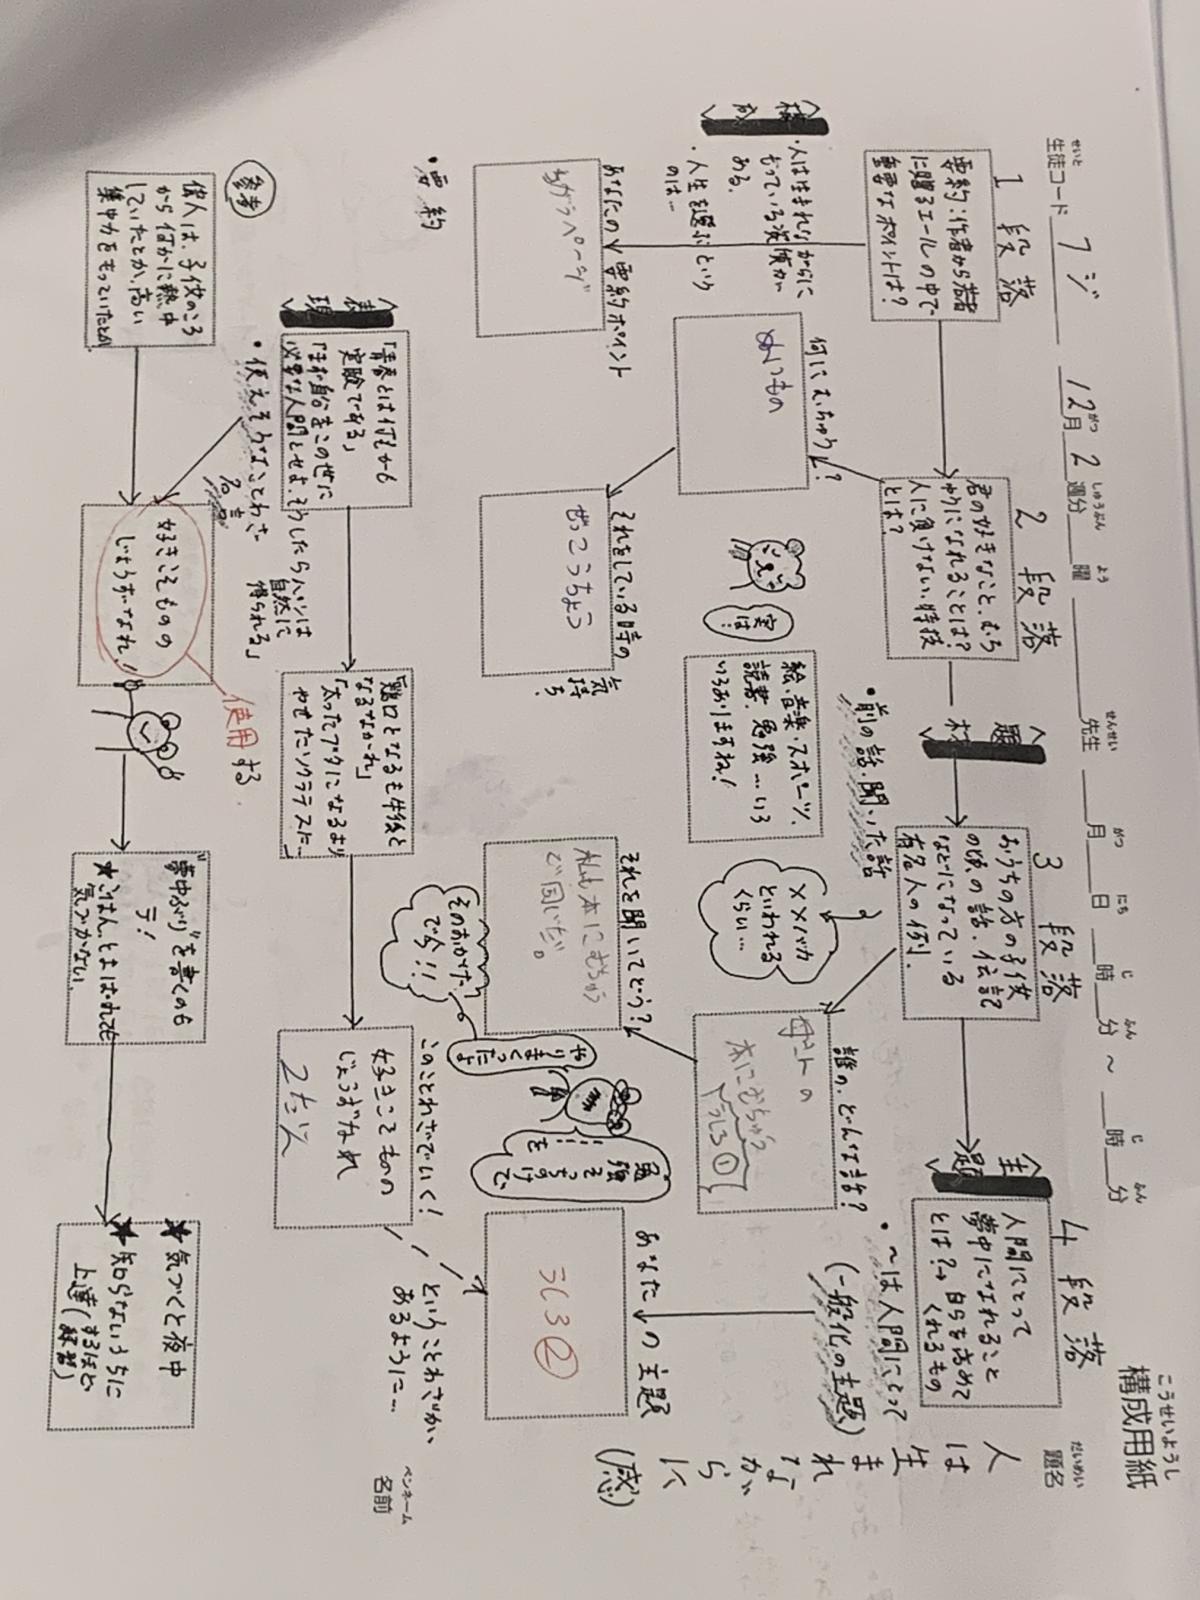 こうせいようし
構成用紙
だいめい
題名
人は生まれながらに(感)
ペンネーム
名前
せいと
生徒コード フジ
12月2週分
がつ
しゅうぶん
よう
曜
せんせい
先生
がつ
月
にち
日
じ
時
ふん
分
~
じ
時
ふん
分
1段落
要約:作者から若者
に贈るエールの中で
重要なポイントは?
〈構成〉
・人は生まれながらに
もっている
ある。
・人生を選ぶという
のは…
あなたの要約ポイント
ちがうページ
・要約
2段落
君の好きなこと、むち
ゅうになれることは?
人に負けない特技
とは?
何にむちゅう?
ぬいもの
それをしている時の
気持ち
ぜっこうちょう
実は?
絵・音楽・スポーツ、
読書、勉強…いろ
いろありますね!
〈題材〉
・前の話・聞いた話
3段落
おうちの方の子供
の頃の話、伝記
などになっている
有名人の例。
××バカ
といわれる
くらい…
誰の、どんな話?
母上の
本にむちゅう
うしろ①
それを聞いてどう?
私も本にむちゅう
で同じだ。
そのおかげ
で今!!
やりまくったよ
勉強そっちのけで
…を
〈主題〉
4段落
人間にとって
夢中になれること
とは?→自らを高めて
くれるもの
・~は人間にとって
(一般化の主題)
あなたの主題
うしろ②
〈表現〉
「青春とは何もかも
実験である」
「まず自分をこの世に
必要な人間とせよ。そうしたらパンは
自然に
得られる」
「鶏口となるも牛後と
なるなかれ」
「太ったブタになるより
やせたソクラテスに…
このことわざでいく!
好きこそものの
じょうずなれ
2だん
ということわざが、
あるように…
参考
偉人は、子供のころ
から何かに熱中
していたとか、高い
集中力をもっていたとか
・使えそうなことわざ
名言
好きこそものの
じょうずなれ!
使用する
"夢中ぶり"を書くのも
テ!
★ごはんとよばれても
気づかない
★気づくと夜中
★知らないうちに
上達(するほど
練習)